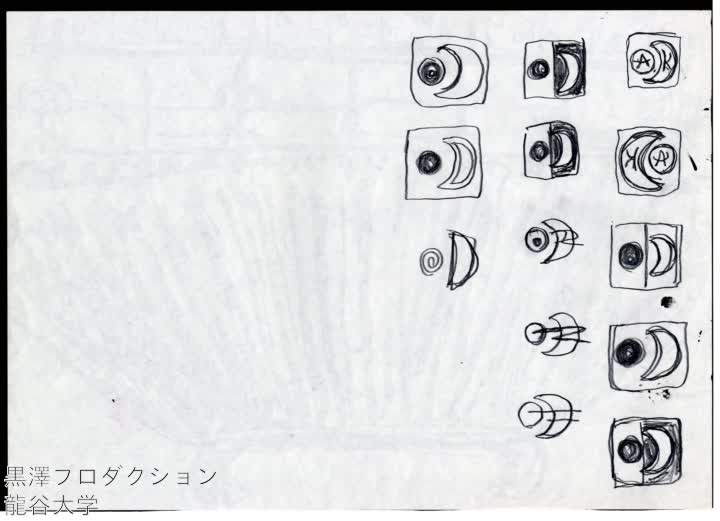 黒澤プロダクション
龍谷大学
AK
KA